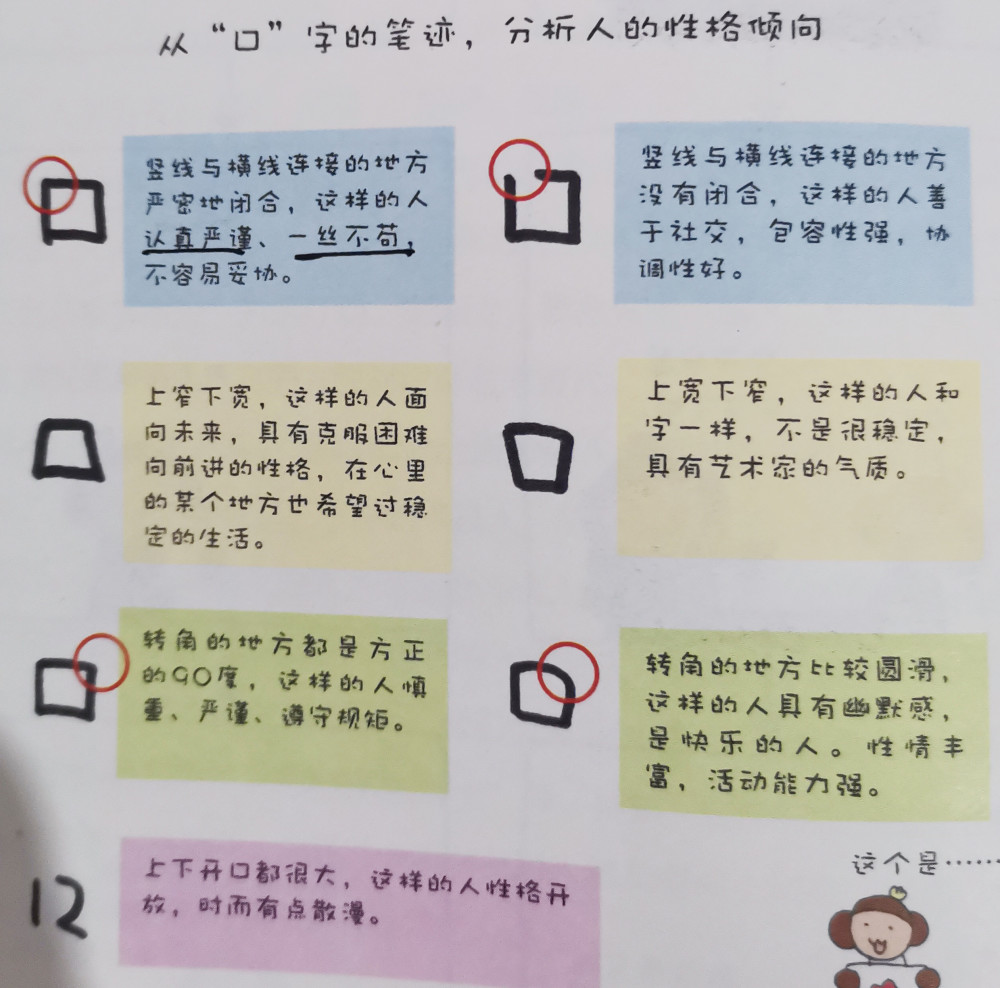 从“口”字的笔迹，分析人的性格倾向
竖线与横线连接的地方
严密地闭合，这样的人
认真严谨、一丝不苟，
不容易妥协。
竖线与横线连接的地方
没有闭合，这样的人善
于社交，包容性强，协
调性好。
上窄下宽，这样的人面
向未来，具有克服困难
向前进的性格，在心里
的某个地方也希望过稳
定的生活。
上宽下窄，这样的人和
字一样，不是很稳定，
具有艺术家的气质。
转角的地方都是方正
的90度，这样的人慎
重、严谨、遵守规矩。
转角的地方比较圆滑，
这样的人具有幽默感，
是快乐的人。性情丰
富，活动能力强。
上下开口都很大，这样的人性格开
放，时而有点散漫。
这个是……